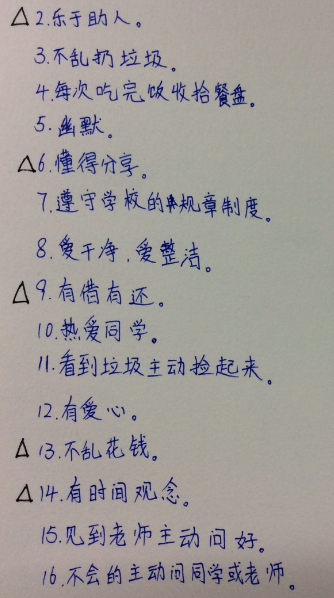 △2.乐于助人。
3.不乱扔垃圾。
4.每次吃完饭收拾餐盘。
5.幽默。
△6.懂得分享。
7.遵守学校的规章制度。
8.爱干净,爱整洁。
△9.有借有还。
10.热爱同学。
11.看到垃圾主动捡起来。
12.有爱心。
△13.不乱花钱。
△14.有时间观念。
15.见到老师主动问好。
16.不会的主动问同学或老师。